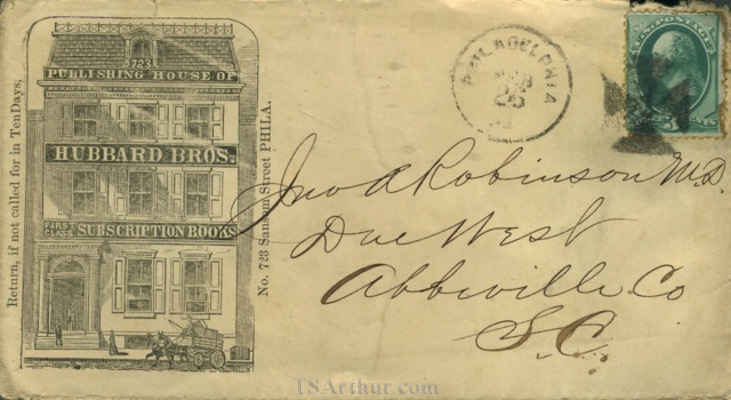 Return, if not called for in Ten Days,
723
PUBLISHING HOUSE OF
HUBBARD BROS.
FIRST CLASS SUBSCRIPTION BOOKS
No. 723 Sansom Street PHILA.
PHILADELPHIA
26
Jno A Robinson M.D.
Due West
Abbeville Co
S.C.
TSArthur.com